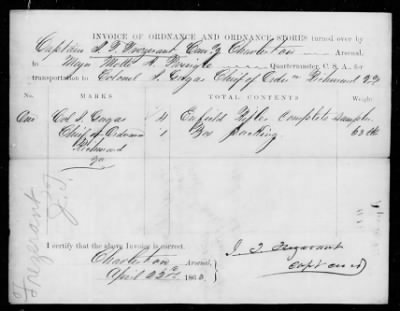 INVOICE OF ORDNANCE AND ORDNANCE STORES turned over by
Captain J. T. Trezevant Com'g Charleston Arsenal,
to Major Motte A. Pringle Quartermaster, C. S. A., for
transportation to Colonel J. Gorgas Chief of Ordce Richmond Va
No. MARKS TOTAL CONTENTS Weight
One Col J. Gorgas 4 Enfield Rifles Complete samples
Chief of Ordnance 1 Box packing 63 lbs
Richmond
Va
I certify that the above Invoice is correct.
Charleston Arsenal,
April 22d 186
J. T. Trezevant
Capt
Trezerant
J. T.